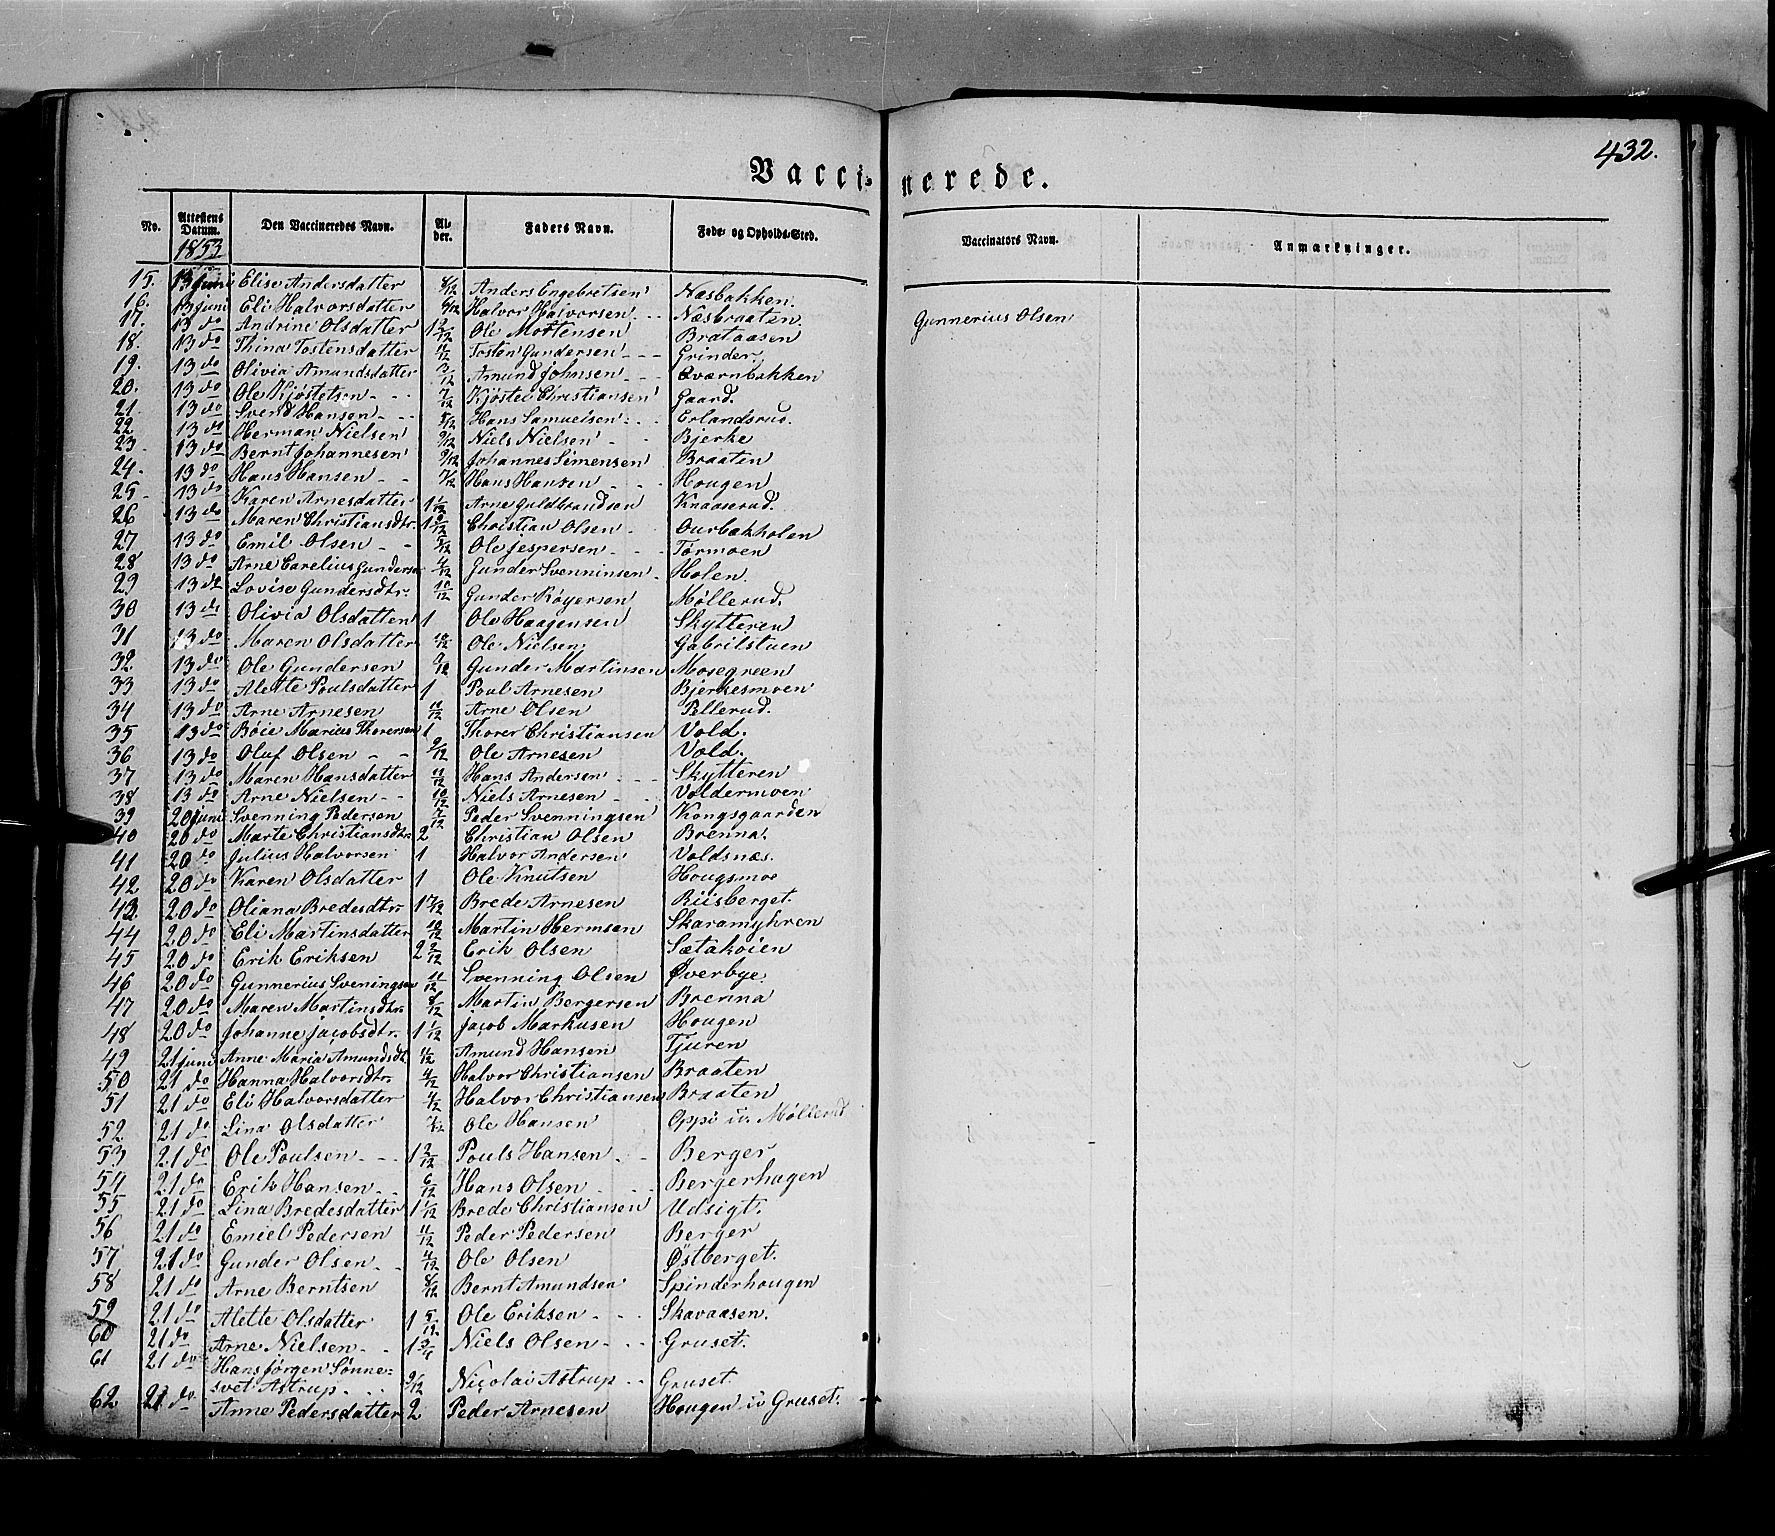 432.
Vaccinerede.
No. Attestens Datum. Den Vaccineredes Navn. Alder. Faders Navn. Føde- og Opholds-Sted. Vaccinators Navn. Anmærkninger.
1853
15. 13 Juni Elise Andersdatter 8/12 Anders Engebretsen Næsbakken.
16. 13 juni Eli Halvorsdatter 6/12 Halvor Halvorsen Næsbraaten. Gunnerius Olsen
17. 13 do Andrine Olsdatter 1 2/12 Ole Mortensen Brataasen
18. 13 do Thina Tostensdatter Tosten Gundersen Grinder.
19. 13 do Olivia Amundsdatter 3/12 Amund Johnsen Qværnbakken
20. 13 do Ole Kjøstelsen 7/12 Kjøstel Christiansen Gaard.
21. 13 do Svend Hansen 8/12 Hans Samuelsen Erlandsrud.
22. 13 do Herman Nielsen 9/12 Niels Nielsen Bjerke
23. 13 do Bernt Johannesen 9/12 Johannes Simensen Braaten
24. 13 do Hans Hansen 7/12 Hans Hansen Hougen
25. 13 do Karen Arnesdatter 1 1/12 Arne Guldbrandsen Knaaserud.
26 13 do Maren Christiansdtr. Christian Olsen Ourbækholen
27 13 do Emil Olsen Ole Jespersen Tørmoen
28 13 do Arne Carelius Gunders 4/12 Gunder Svenninsen Holen.
29 13 do Lovise Gundersdtr. 10/12 Gunder Røyersen Møllerud.
30 13 do Olivia Olsdatter 1 Ole Haagensen Skytteren
31 13 do Maren Olsdatter 10/12 Ole Nielsen Gabrilstuen
32 13 do Ole Gundersen Gunder Martinsen Mosegreen
33 13 do Alette Poulsdatter 1 Poul Arnesen Bjerkesmoen
34 13 do Arne Arnesen 10/12 Arne Olsen Pellerud.
35 13 do Bøie Marius Thorersen 1 Thorer Christiansen Vold.
36 13 do Oluf Olsen 9/12 Ole Arnesen Vold.
37 13 do Maren Hansdatter 11/12 Hans Andersen Skytteren
38 13 do Arne Nielsen 10/12 Niels Arnesen Voldermoen
39 20 juni Svenning Pedersen Peder Svenningsen Kongsgaarden
40 20 do Marte Christiansdtr 2 Christian Olsen Brenna.
41 20 do Julius Halvorsen 1 Halvor Andersen Voldsnæs.
42 20 do Karen Olsdatter 1 Ole Knutsen Hougsmoe
43. 20 do Oliana Bredesdtr Brede Arnesen Riisberget.
44 20 do Eli Martinsdatter 10/12 Martin Hermsen Skaramyhren
45 20 do Erik Eriksen 2 2/12 Erik Olsen Sætakøien
46 20 do Gunnerius Sveningsen 11/12 Svenning Olsen Øverbye.
47 20 do Maren Martinsdtr. 8/12 Martin Bergersen Brenna
48 20 do Johanne Jacobsdtr. 1 1/12 Jacob Markusen Hougen
49 21 juni Anne Maria Amundsdt. Amund Hansen Tjuren
50 21 do Hanna Halvorsdtr 4/12 Halvor Christiansen Braaten
51 21 do Eli Halvorsdatter 4/12 Halvor Christiansen Braaten
52 21 do Lina Olsdatter Ole Hansen Oppi u. Møllerud
53 21 do Ole Poulsen 1 2/12 Pouls Hansen Berger
54 21 do Erik Hansen 6/12 Hans Olsen Bergerhagen
55 21 do Lina Bredesdatter 1 1/12 Brede Christiansen Udsigt.
56 21 do Emiel Pedersen 11/12 Peder Pedersen Berger
57 21 do Gunder Olsen 4/12 Ole Olsen Østberget.
58 21 do Arne Berntsen 8/12 Bernt Amundsen Spinderhougen
59 21 do Alette Olsdatter 1 5/12 Ole Eriksen Skavaasen.
60 21 do Arne Nielsen 1 3/4 Niels Olsen Gruset.
61 21 do Hans Jørgen Sønne-
svet Astrup 9/12 Nicolai Astrup Gruset.
62 21 do Anne Pedersdatter 2 Peder Arnesen Hougen u Gruset.